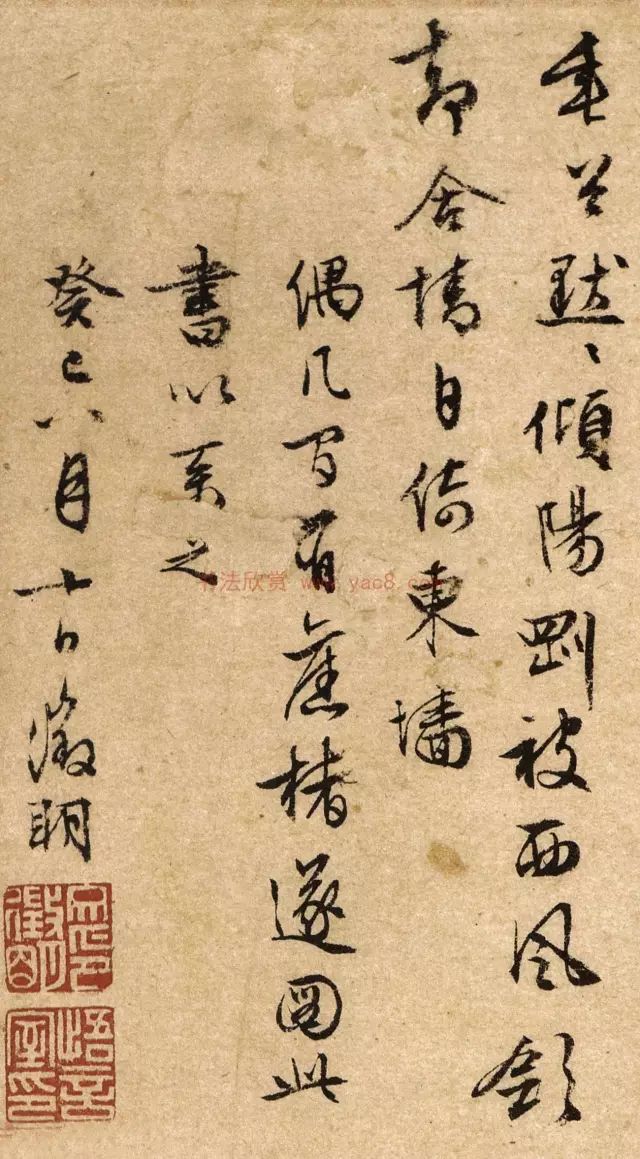 默〻傾陽剛被西風領
却含情自倚東墻
偶几間有舊楮遂圖此
書以系之
癸巳八月十日徵明
文徵明印
悟言室印
书法欣赏 www.yac8.com